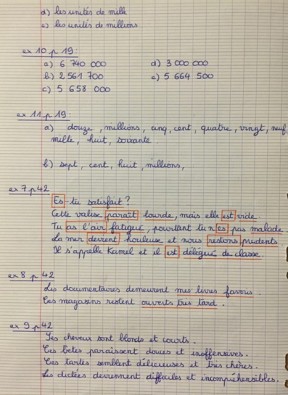 d) les unités de mille
e) les unités de millions
ex 10 p 19
a) 6 740 000 d) 3 000 000
b) 2 561 700 e) 5 664 500
c) 5 658 000
ex 11 p 19
a) douze, millions, cinq, cent, quatre, vingt, neuf
mille, huit, soixante
b) sept, cent, huit, millions,
ex 7 p 42
Es-tu satisfait ?
Cette valise paraît lourde, mais elle est vide.
Tu as l'air fatigué, pourtant tu n'es pas malade.
La mer devient houleuse et nous restons prudents
Il s'appelle Kamel et il est délégué de classe
ex 8 p 42
Les documentaires demeurent mes livres favoris.
Ces magasins restent ouverts très tard.
ex 9 p 42
Tes cheveux sont blonds et courts.
Ces bêtes paraissent douces et inoffensives.
Ces tartes semblent délicieuses et très chères.
Les dictées deviennent difficiles et incompréhensibles.